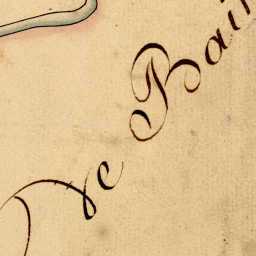 de Bai